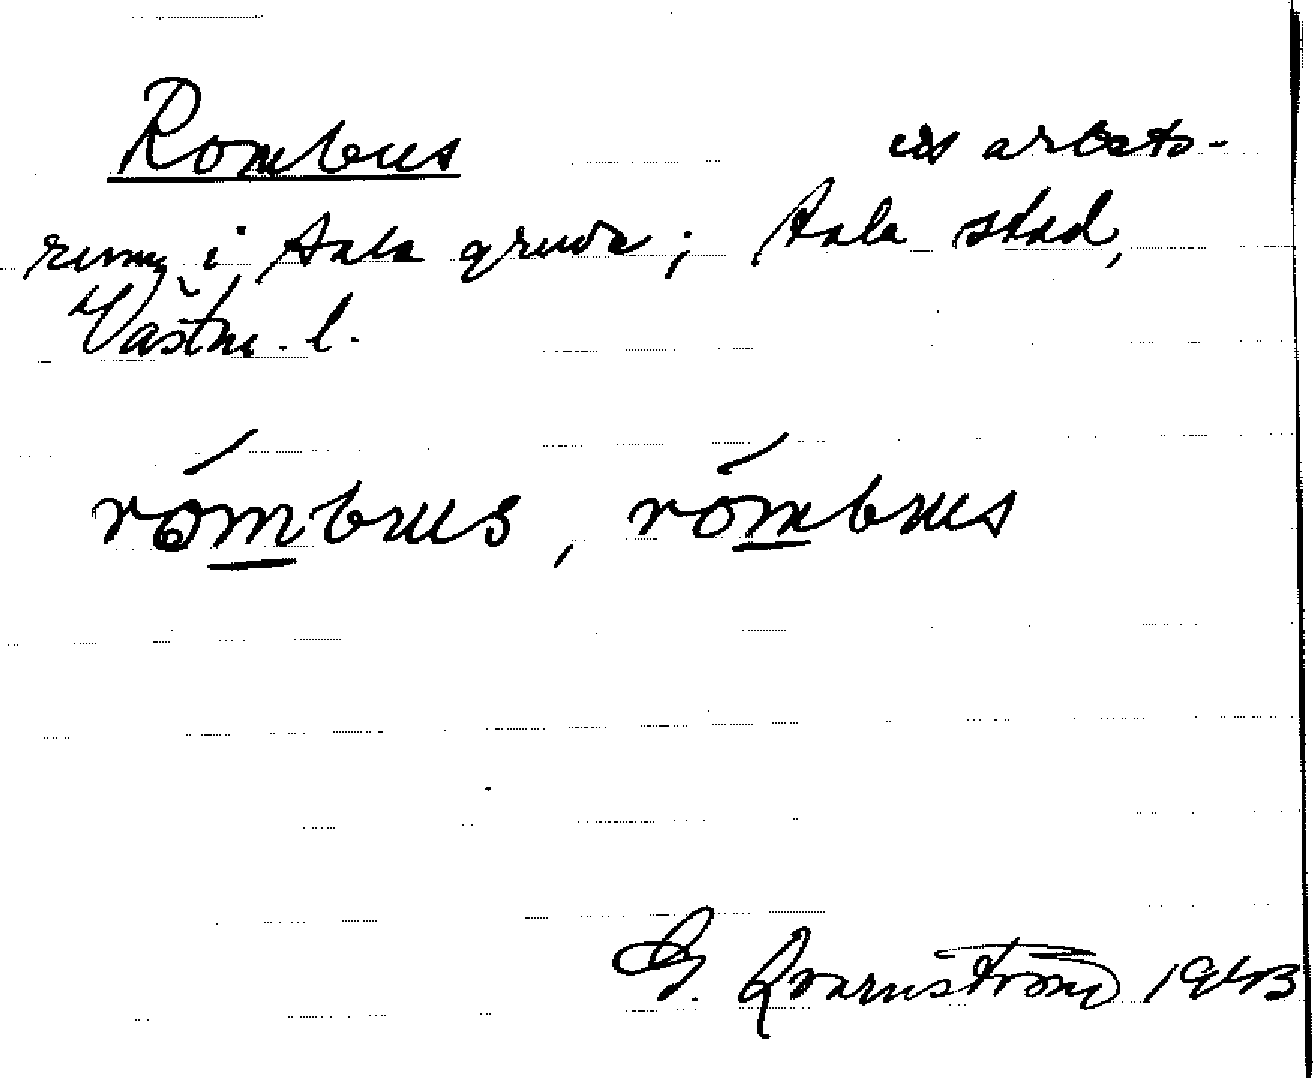 Rombus ett arbets-
rum i Sala gruva; Sala stad,
Västm. l.
römbus, römbus
G. Qvarnström 1943